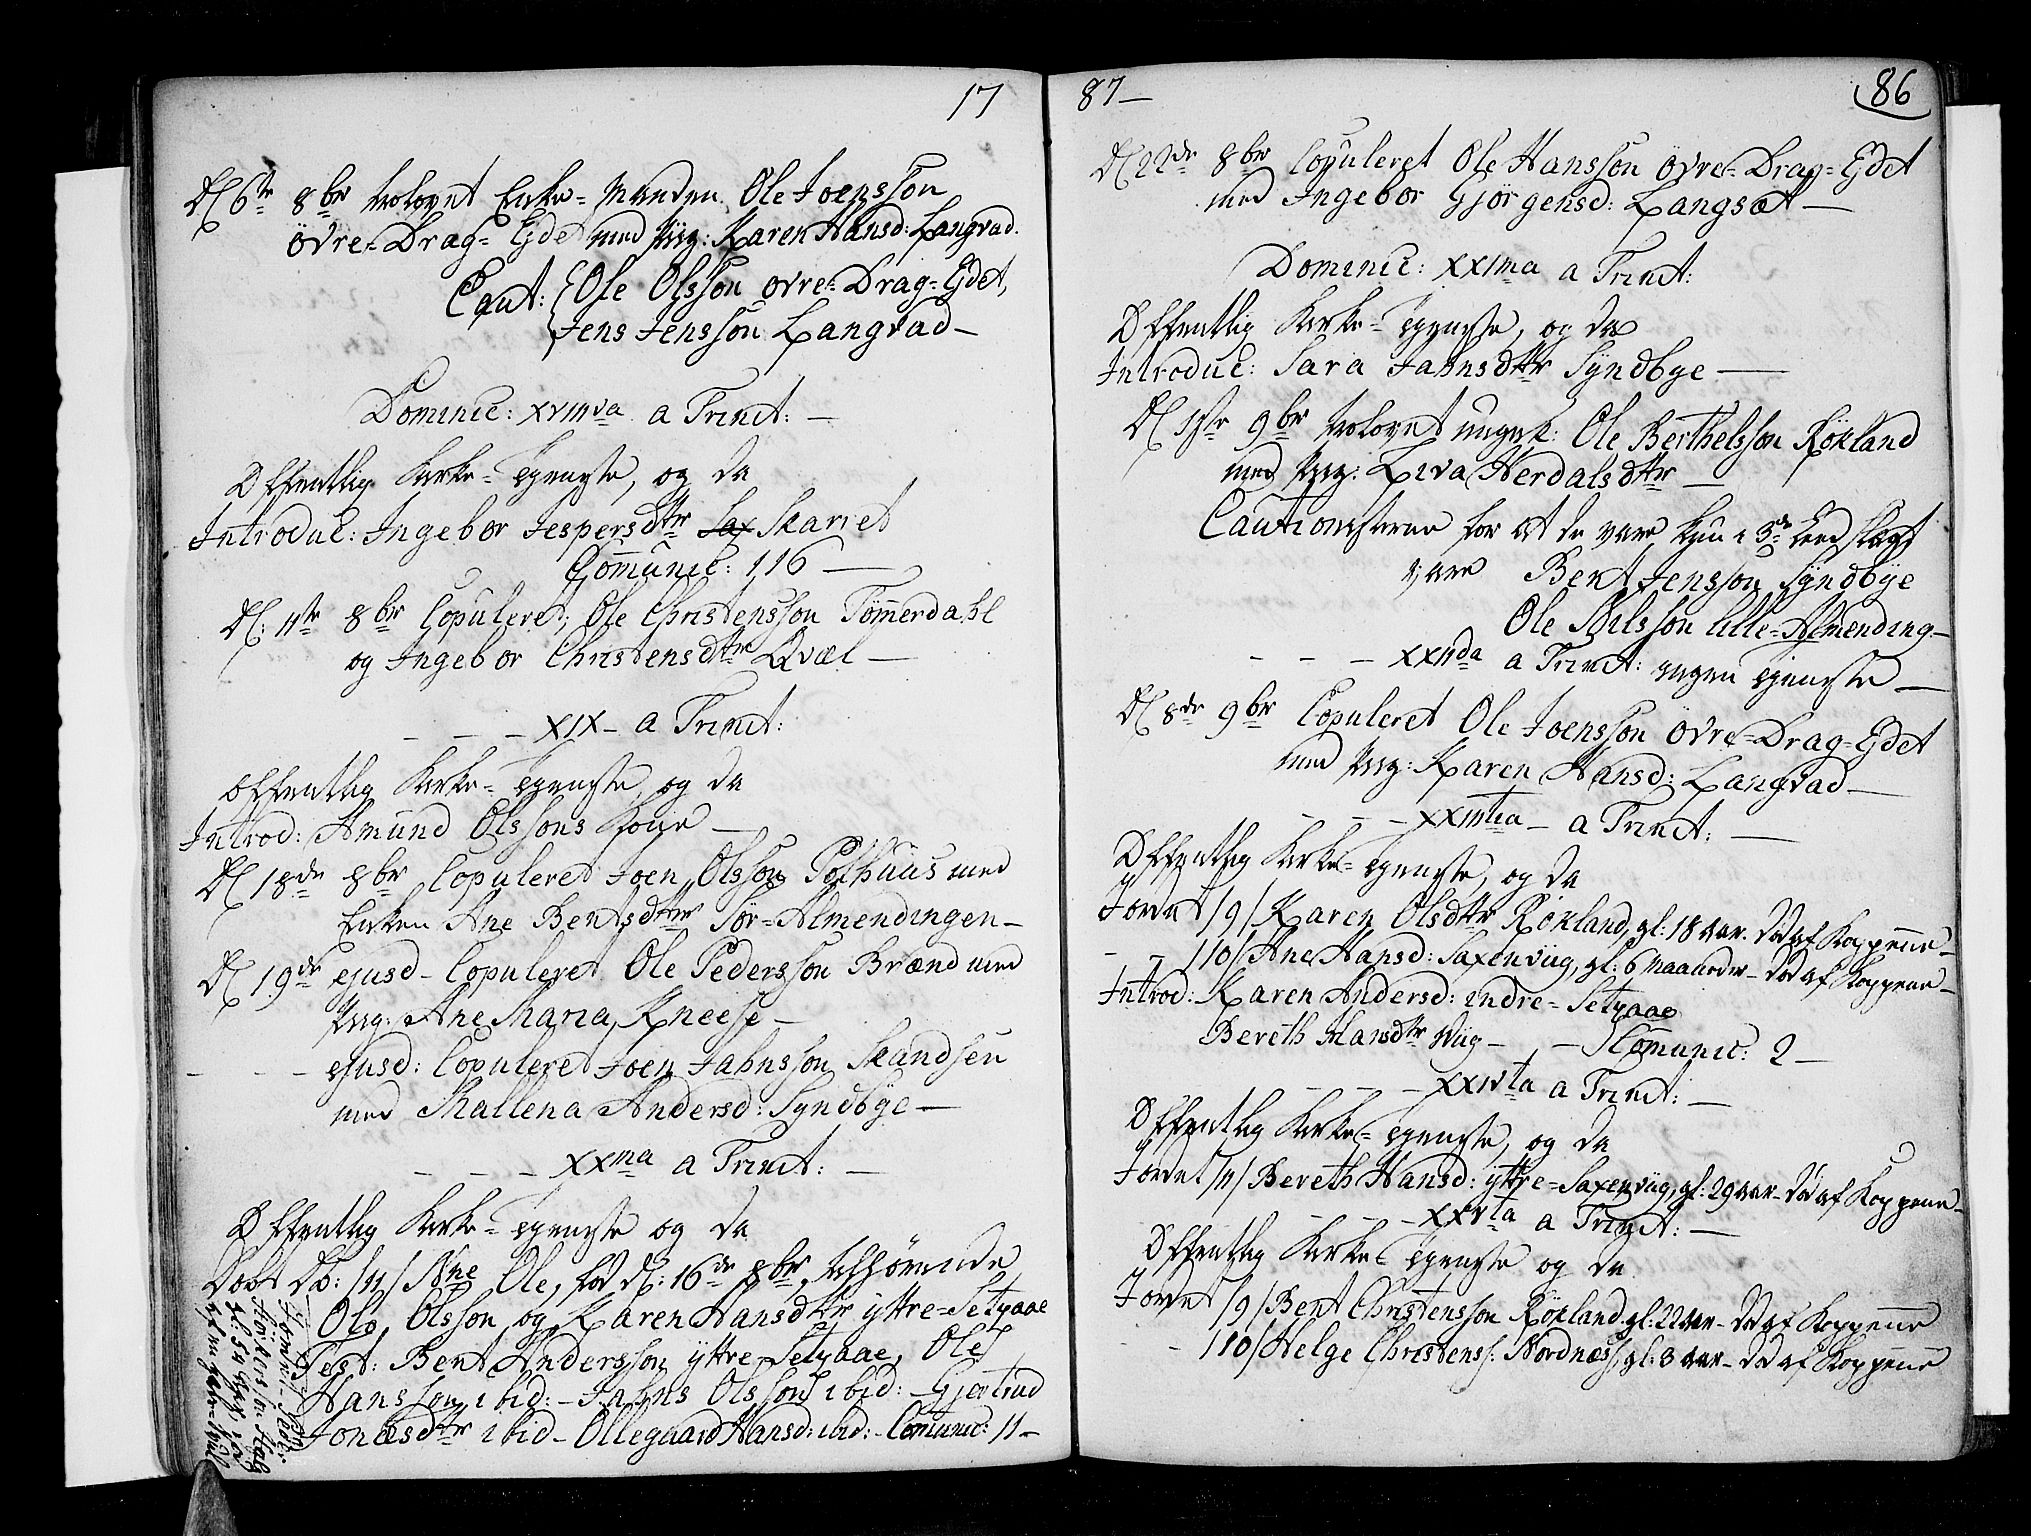 17
D: 6te 8br trolovet Enke-Manden Ole Joensson
övre-Drag-Ejdet med Pig: Karen Hansd: Langvad.
Caut: Ole Olsson ovre-Drag-Ejdet,
Jens Jensson Langvad—
Dominic: XVIIIva a Trinit:—
Offentlig Kirke-Tjeneste, og da
Introduc: Ingebor Jespersdttr Sax Skariet
Communic: 116—
D: 11te 8br Copuleret, Ole Christensson Tömmerdahl
og Ingebor Christensdttr Qvæl—
— — — XIX— a Trinit:
Offentlig Kirke-Tjeneste, og da
Introd: Amund Olssons Kone—
D: 18de 8br Copuleret Joen Olsson Pothuus med
Enken Ane Bentsdttr Sör-Almendingen—
D: 19de ejusd— Copuleret Ole Pedersson Brænd med
Pig: Ane Maria Kneese—
— — — ejusd: Copuleret Joen Jahnsson Skandsen
med Mallena Andersd: Syndbye—
— — — XXma a Trinit:—
Offentlig Kirke-Tjeneste og da
Döbt Db: /11/ Nne Ole, fød d: 16de 8br, tilhørende
Ole Olsson og Karen Hansdttr yttre-Setvaae
Test: Bent Andersson yttre Setvaae, Ole
Hansson ibid:— Jahns Olsson ibid:— Gjertrud
Jonæsdttr ibid— Ollegaard Hansd: ibid:— Comunic: 11—
87—
86
D: 22de 8br Copuleret Ole Hansson övre-Drag-Ejdet
med Ingebor Gjörgensd: Langsæt—
Dominic: XXIma a Trinit:
Offentlig Kirke-Tjeneste, og da
Introduc: Sara Jahnsdttr Syndbye—
D: 1ste 9br trolovet ungk: Ole Berthelsson Rökland
med Pig: Liva Herdalsdttr—
Cautionisterne for at de vare kun i 3de Leed skyldt
vare Bent Jensson Syndbye
Ole Nilsson lille-Almending—
— — — XXIIda a Trinit: ingen Tjeneste—
D: 8de 9br Copuleret Ole Joensson övre-Drag-Ejdet
med Pig: Karen Hansd: Langvad—
— — — XXIIItia— a Trinit:—
Offentlig Kirke-Tjeneste, og da
Jordet /9/ Karen Olsdttr Rökland, gl: 18 aar. Død af Koppene—
— — /10/ Ane Hansd: Saxenviig, gl: 6 Maaneder— Død af Koppene—
Introd: Karen Andersd: indre-Setvaae
Bereth Hansdttr Viig— — Comunic: 2—
— — — XXIVta a Trinit:—
Offentlig Kirke-Tjeneste, og da
Jordet /11/ Bereth Hansd: yttre-Saxenviig, gl: 29 aar— Død af Koppene—
— — — XXVta a Trinit:—
Offentlig Kirke-Tjeneste og da
Jordet /9/ Bent Christensson Rökland gl: 22 aar— Død af Koppene
— — /10/ Helge Christenss: Nordnæss, gl: 3 aar— Død af Koppene